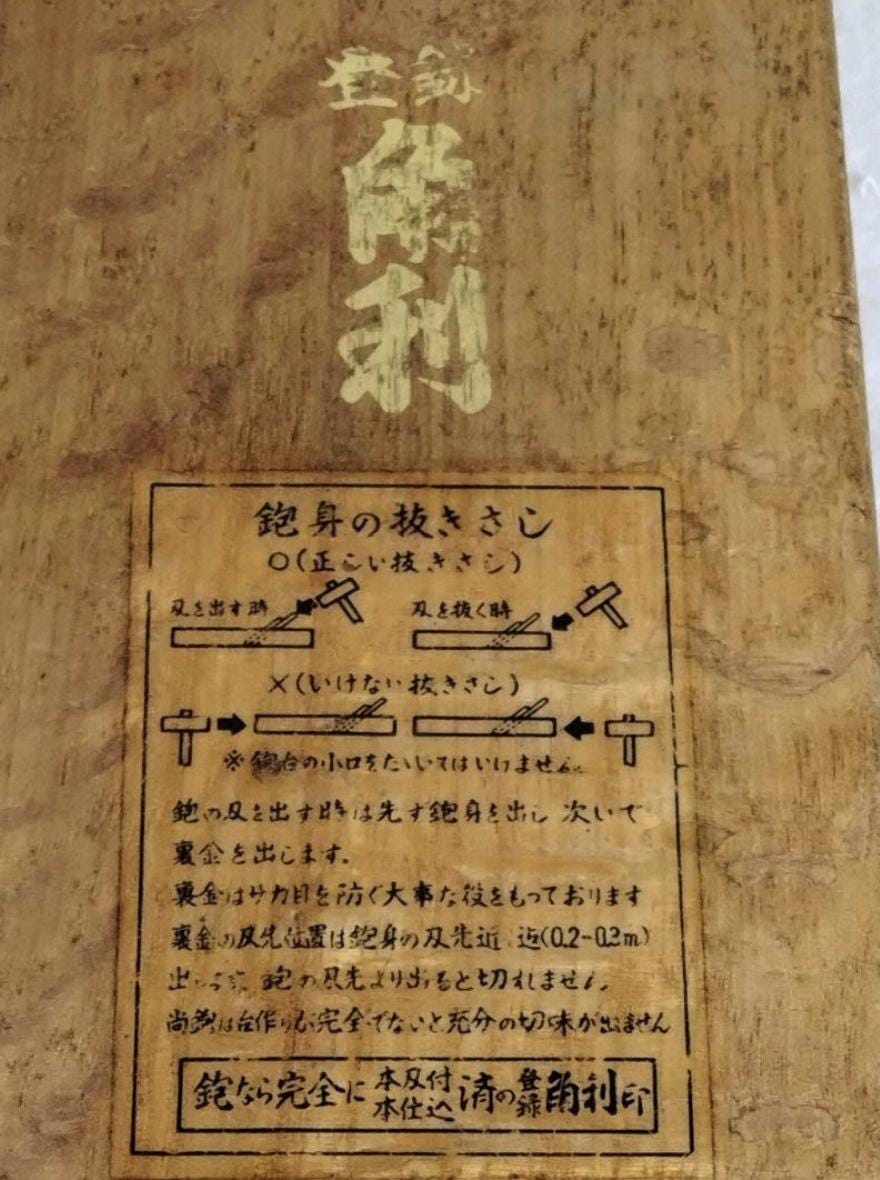 登録
角利
鉋身の抜きさし
○(正しい抜きさし)
刄を出す時
刄を抜く時
×(いけない抜きさし)
※鉋台の小口をたゝいてはいけません。
鉋の刄を出す時は先ず鉋身を出し 次いで
裏金を出します。
裏金はサカ目を防ぐ大事な役をもっております
裏金の刄先位置は鉋身の刄先近 迄(0.2-0.3m)
出 鉋の刄先より出ると切れません。
尚鉋は台作りが完全でないと充分の切味が出ません
鉋なら完全に 本刄付 本仕込 済の 登録 角利印